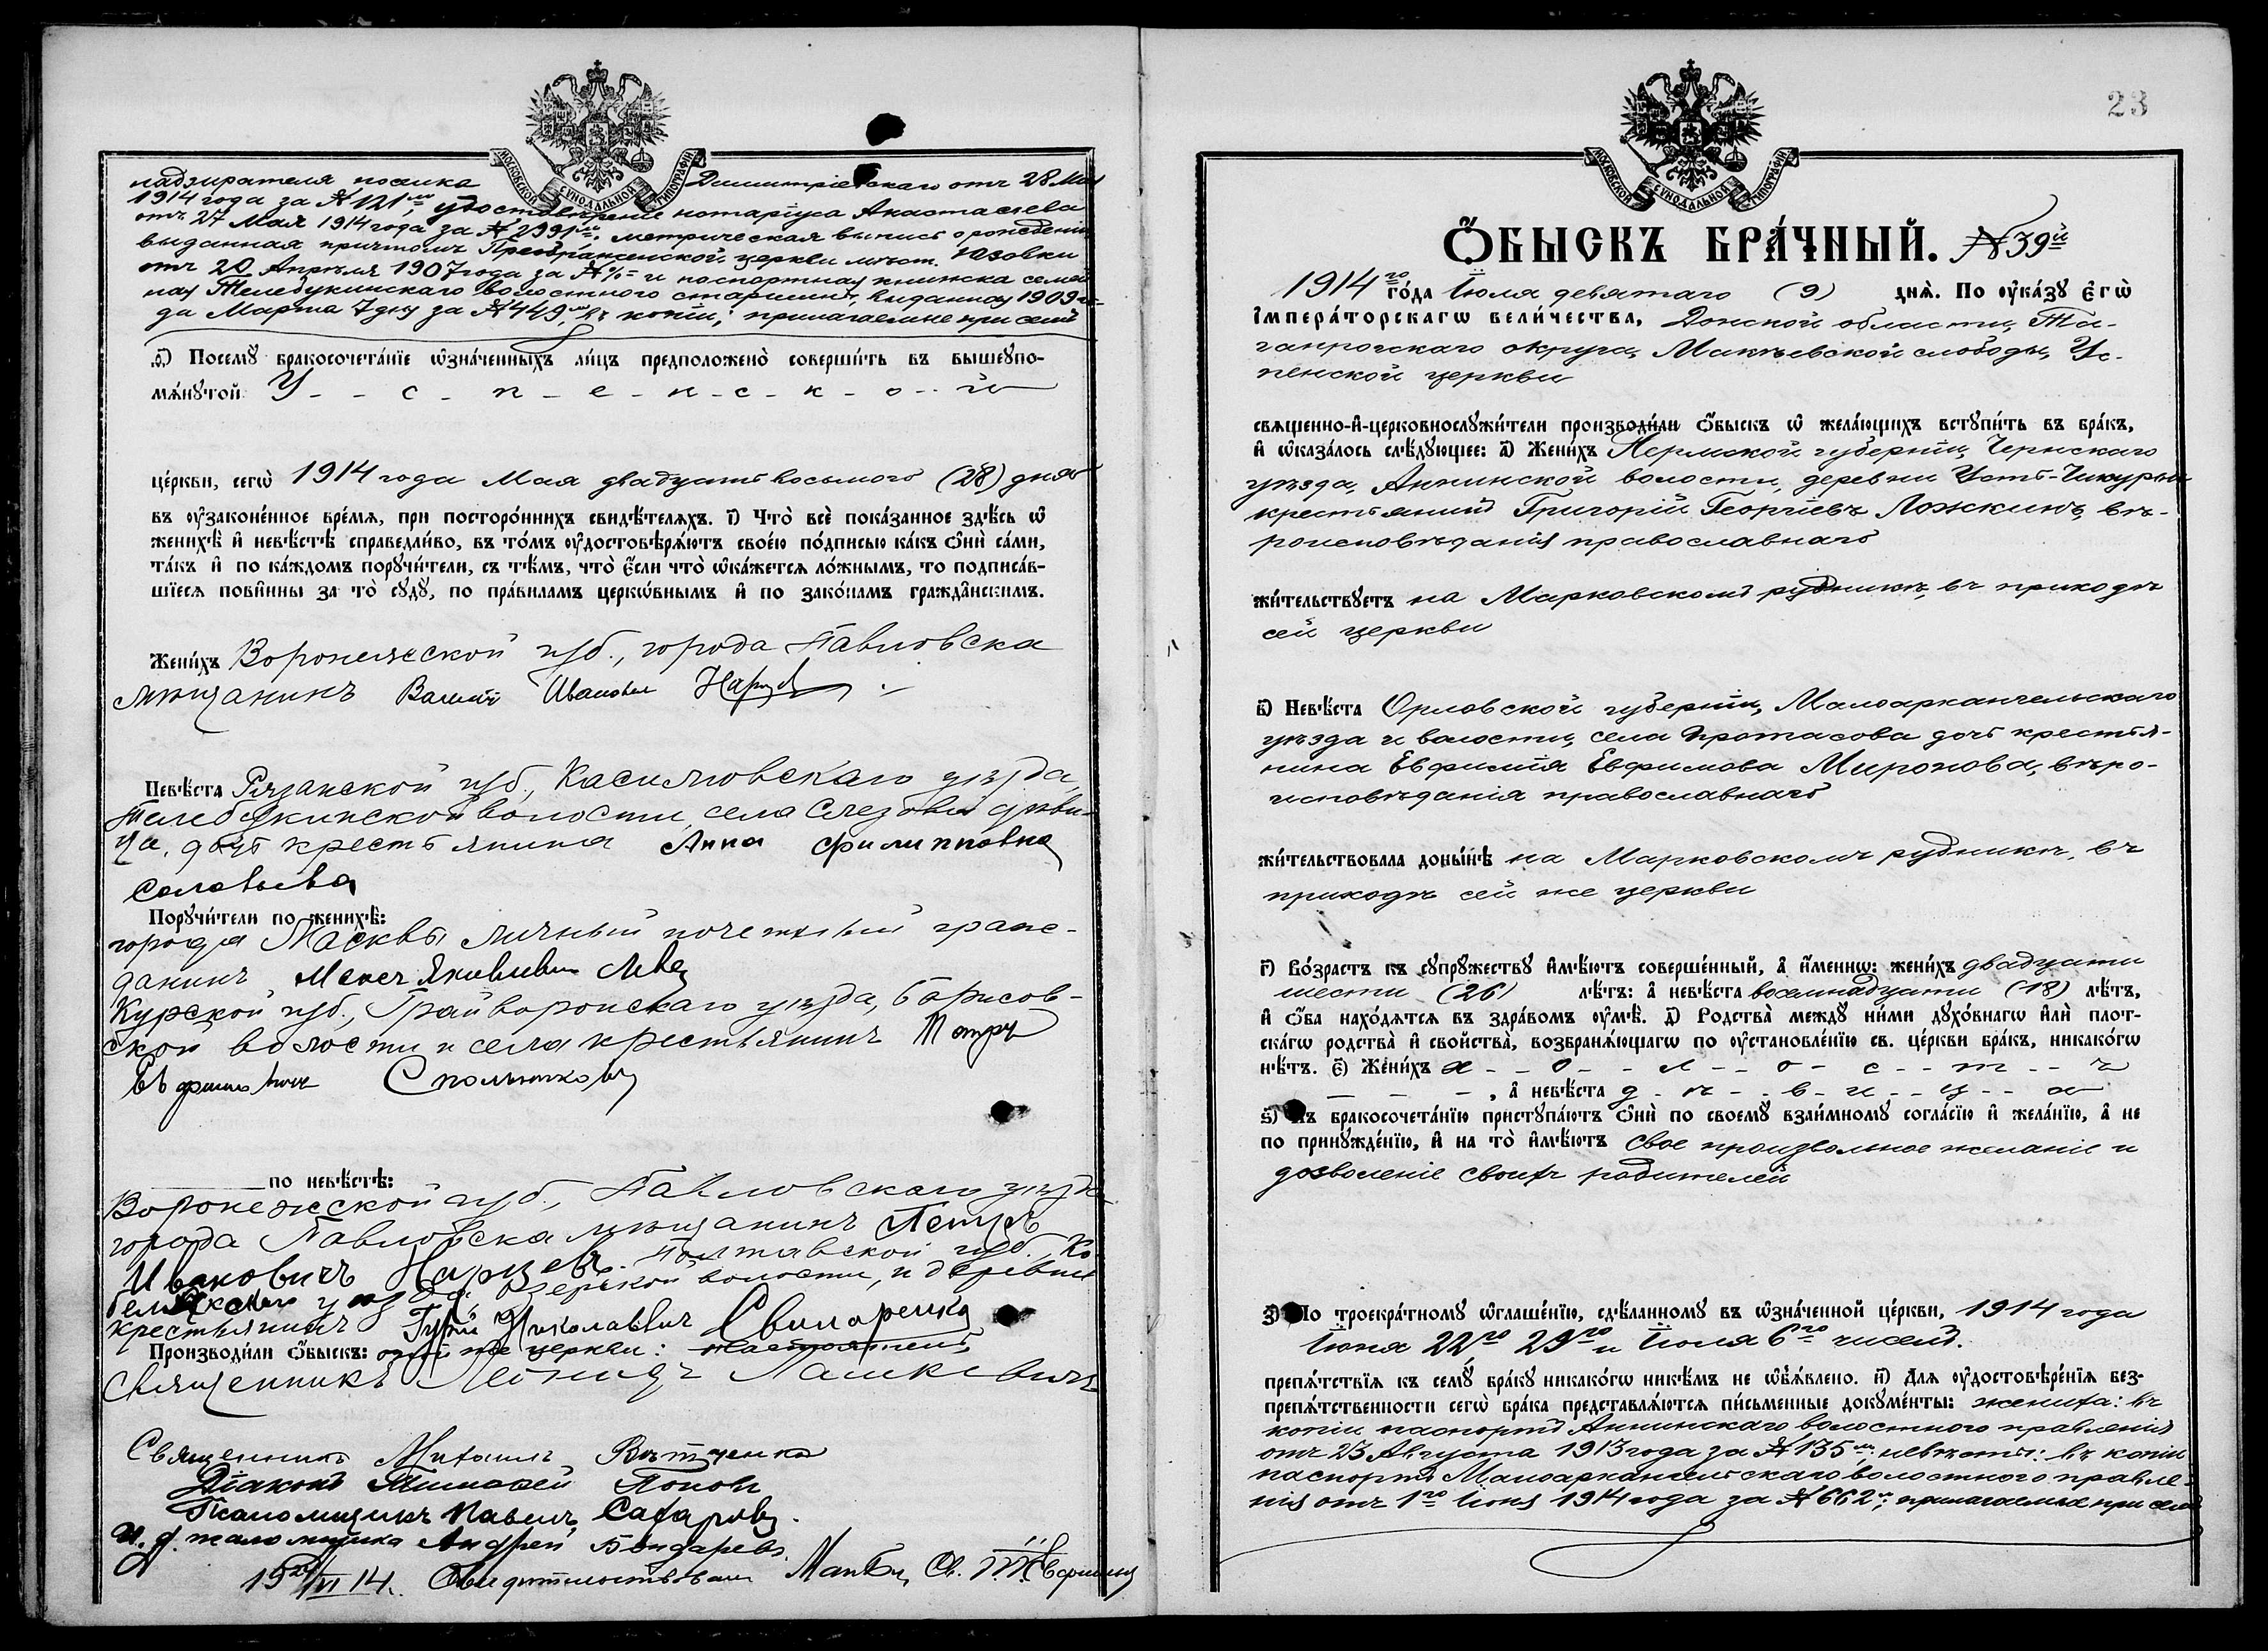 МОСКОВСКОЙ СУНОДАЛЬНОЙ ТИПОГРАФІИ
надзирателя поселка Димитріевскаго отъ 28 Мая
1914 года за № 121м, удостовѣреніе нотаріуса Анастасіева
отъ 27 Мая 1914 года за № 2391м, метрическая выпись о рожденіи
выданная причтомъ Преображенской церкви мѣст. Юзовки
отъ 20 Апрѣля 1907 года за № %= и паспортная книжка семей
ная Телебукинскаго волостного старшины, выданная 1909 го-
да Марта 7 дня за № 449м, въ копіи; прилагаемые при семъ
Ѳ҃) Посемꙋ̀ бракосочета́нїе ѡ҆зна́ченныхъ ли́цъ предположено̀ соверши́ть въ вышеꙋпо-
мѧ́нꙋтой У - - с - п - е - н - с - к - о - - й
це́ркви, сегѡ̀ 1914 года Мая двадцать восьмого (28) дня
въ оу҆зако́ненное вре́мѧ, при посторо́ннихъ свидѣ́телѧхъ. і҃) Что̀ всѐ пока́занное здѣ́сь ѡ҆
женихѣ̀ и҆ невѣ́стѣ справедли́во, въ то́мъ оу҆достовѣрѧ́ютъ свое́ю по́дписью ка́къ ѻ҆нѝ са́ми,
та́къ и҆ по ка́ждомъ порꙋчи́тели, съ тѣ́мъ, что̀ є҆́сли что̀ ѡ҆ка́жетсѧ ло́жнымъ, то подписа́в-
шїесѧ пови́нны за то̀ сꙋдꙋ̀, по пра́виламъ церко́внымъ и҆ по зако́намъ гражда́нскимъ.
Жени́хъ Воронежской губ., города Павловска
мѣщанинъ Василій Ивановъ Нарцев
Невѣ́ста Рязанской губ., Касимовскаго уѣзда,
Телебукинской волости, села Слезова дѣви-
ца, дочь крестьянина Анна Филипповна
Соловьева
Порꙋчи́тели по женихѣ̀:
города Москвы личный почетный граж-
данинъ
Курской губ., Грайворонскаго уѣзда, Борисов-
ской волости и села крестьянинъ Петръ
Евфимовичъ
по невѣ́стѣ:
Воронежской губ., Павловскаго уѣзда
города Павловска мѣщанинъ Петръ
Ивановичъ Нарцевъ. Полтавской губ., Ко-
белякскаго уѣзда, волости, и деревни
крестьянинъ Гурій Николаевич Свинаренко
Производи́ли ѻ҆́быскъ: оной же церкви:
Священникъ Леонидъ Лашкевичъ
Священникъ Митаилъ
Діаконъ Тимофей Попов
Псаломщикъ Павелъ Сахаровъ.
И. д. псаломщика Андрей Бондаревъ.
19 VI 14. Свидѣтельствовалъ Св.
МОСКОВСКОЙ СУНОДАЛЬНОЙ ТИПОГРАФІИ
23
Ѻ҆БЫСКЪ БРА́ЧНЫЙ. №39й
1914го го́да Іюля девятаго (9) днѧ̀. По оу҆ка́зꙋ є҆гѡ̀
і҆мпера́торскагѡ вели́чества, Донской области, Та-
ганрогскаго округа, Макѣевской слободы, Ус-
пенской церкви
свѧщенно-и҆-церковнослꙋжи́тели производи́ли ѻ҆́быскъ ѡ҆ жела́ющихъ встꙋпи́ть въ бра́къ,
и҆ ѡ҆каза́лось слѣ́дꙋющее: а҃) Жени́хъ Пермской губерніи, Чернскаго
уѣзда, Аннинской волости, деревни Усть-Чикурьи
крестьянинъ Григорій Георгіевъ Ложкинъ, вѣ-
роисповѣданія православнаго
жи́тельствꙋетъ на Марковскомъ рудникѣ, въ приходѣ
сей церкви
в҃) Невѣ́ста Орловской губерніи, Малоархангельскаго
уѣзда и волости, села Протасова дочь крестья-
нина Евфимія Евфимова Миронова, вѣро-
исповѣданія православнаго
жи́тельствовала доны́нѣ на Марковскомъ рудникѣ, въ
приходѣ сей же церкви
г҃) Во́зрастъ къ сꙋпрꙋ́жествꙋ и҆мѣ́ютъ соверше́нный, а҆ и҆́меннѡ: жени́хъ двадцати
шести (26) лѣ́тъ: а҆ невѣ́ста восемнадцати (18) лѣ́тъ,
и҆ ѻ҆́ба нахо́дѧтсѧ въ здра́вомъ оу҆мѣ̀. д҃) Родства̀ междꙋ̀ ни́ми дꙋхо́внагѡ и҆лѝ плот-
ска́гѡ родства̀ и҆ сво́йства̀, возбранѧ́ющагѡ по оу҆становле́нїю св. це́ркви бра́къ, никако́гѡ
нѣ́тъ. є҃) Жени́хъ х - - о - - л - - о - с - - т - - ъ
- - - , а҆ невѣ́ста д - ѣ - - в - и - ц - - а
ѕ҃) Къ бракосочета́нїю пристꙋпа́ютъ ѻ҆нѝ по своемꙋ̀ взаи́мномꙋ согла́сїю и҆ жела́нїю, а҆ не
по принꙋжде́нїю, и҆ на то̀ и҆мѣ́ютъ свое произвольное желаніе и
дозволеніе своихъ родителей
з҃) По троекра́тномꙋ ѡ҆глаше́нїю, сдѣ́ланномꙋ въ ѡ҆зна́ченной це́ркви, 1914 года
Іюня 22го, 29го и Іюля 6го чиселъ.
препѧ́тствїѧ къ семꙋ̀ бра́кꙋ никако́гѡ никѣ́мъ не ѡ҆б̾ѧ́влено. и҃) Длѧ оу҆достовѣре́нїѧ без-
препѧ́тственности сегѡ̀ бра́ка представлѧ́ютсѧ пи́сьменные докꙋме́нты: жениха: въ
копіи паспортъ Аннинскаго волостного правленія
отъ 23 Августа 1913 года за № 135м; невѣсты: въ копіи
паспортъ Малоархангельскаго волостного правле-
нія отъ 1го Іюня 1914 года за № 662м; прилагаемые при семъ